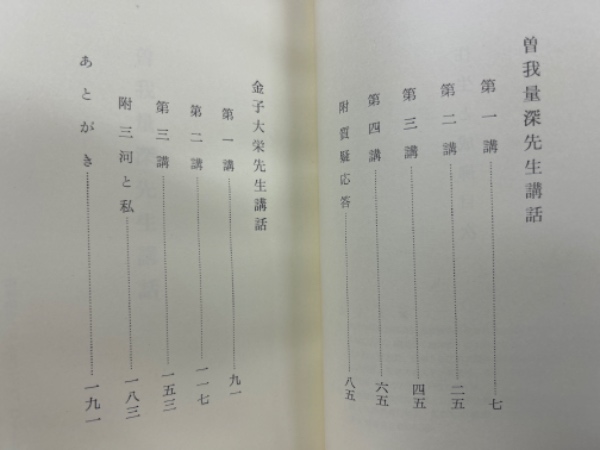 曽我量深先生講話
第一講…………七
第二講…………二五
第三講…………四五
第四講…………六五
附 質疑応答…………八五
金子大栄先生講話
第一講…………九一
第二講…………一一七
第三講…………一五三
附 三河と私…………一八三
あとがき…………一九一